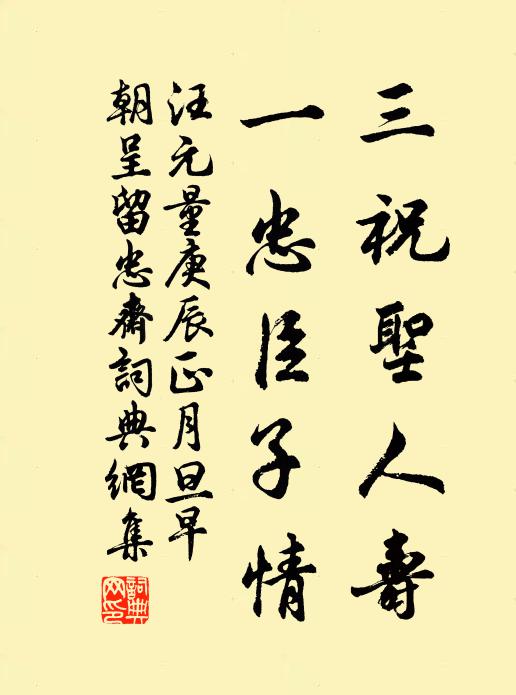 三祝聖人壽
一忠臣子情
汪元量庚辰正月旦早
朝呈留忠齋詞典網集
詞典網印